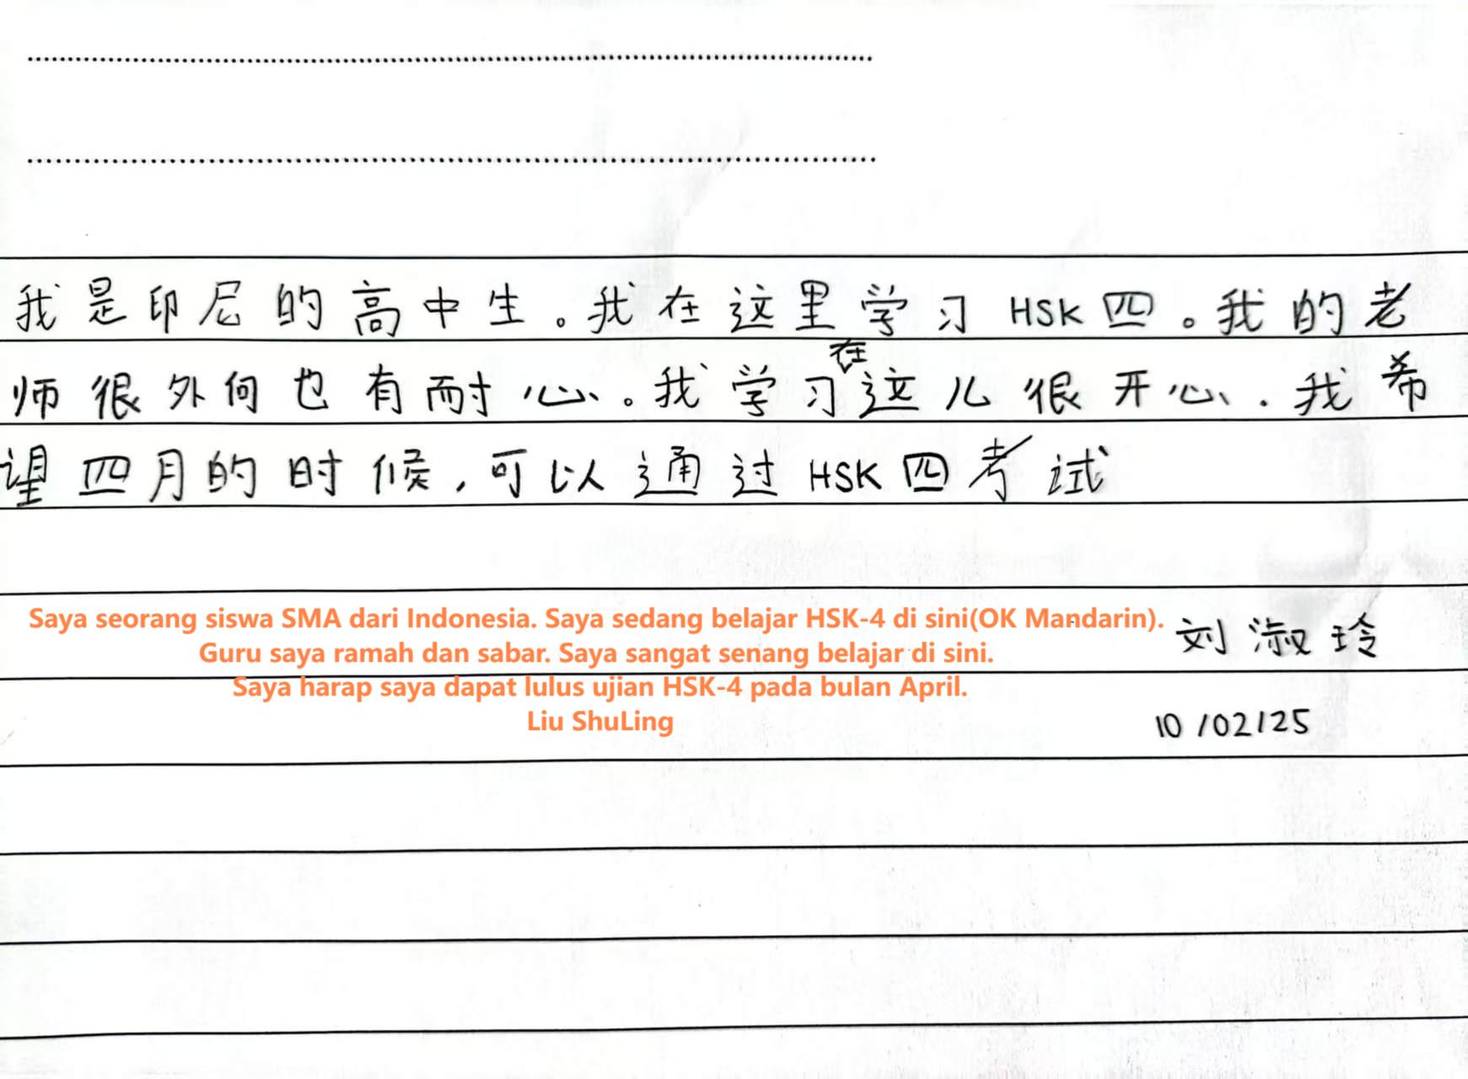 我是印尼的高中生。我在这里学习HSK四。我的老
师很外向也有耐心。我学习在这儿很开心.我希
望四月的时候,可以通过HSK四考试
Saya seorang siswa SMA dari Indonesia. Saya sedang belajar HSK-4 di sini(OK Mandarin).
Guru saya ramah dan sabar. Saya sangat senang belajar di sini.
Saya harap saya dapat lulus ujian HSK-4 pada bulan April.
Liu ShuLing
刘淑玲
10/02/25